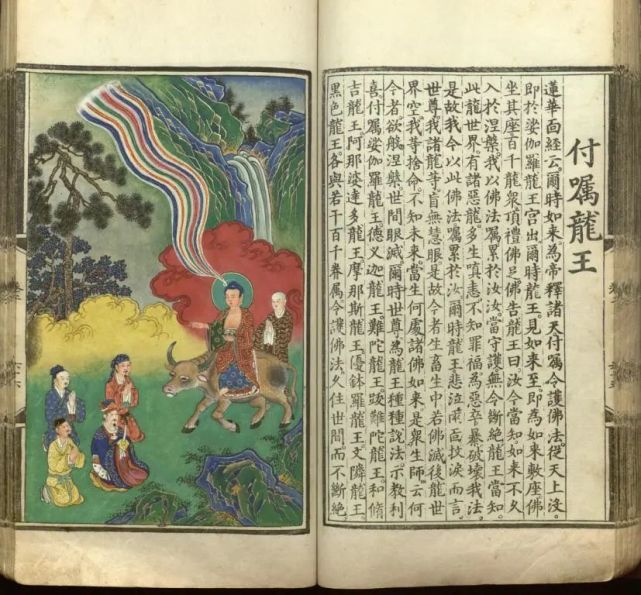 付囑龍王
蓮華面經云爾時如來為帝釋諸天付囑令護佛法從天上沒
即於娑伽羅龍王宮出爾時龍王見如來至即為如來敷座佛
坐其座百千龍眾頂禮佛足佛告龍王曰汝今當知如來不久
入於涅槃我以佛法囑累於汝汝當守護無令斷絕龍王當知
此龍世界有諸惡龍多生嗔恚不知罪福為惡卒暴破壞我法
是故我今以此佛法囑累於汝爾時龍王悲泣雨面抆淚而言
世尊我諸龍等盲無慧眼是故今者生畜生中若佛滅後龍世
界空我等捨命不知未來當生何處諸佛如來是眾生師云何
今者欲般涅槃世間眼滅爾時世尊為龍王種種說法示教利
喜付囑娑伽羅龍王德义迦龍王難陀龍王跋難陀龍王和脩
吉龍王阿那婆達多龍王摩那斯龍王優鉢羅龍王文隣龍王
黑色龍王各與若干百千眷屬令護佛法久住世間而不斷絕